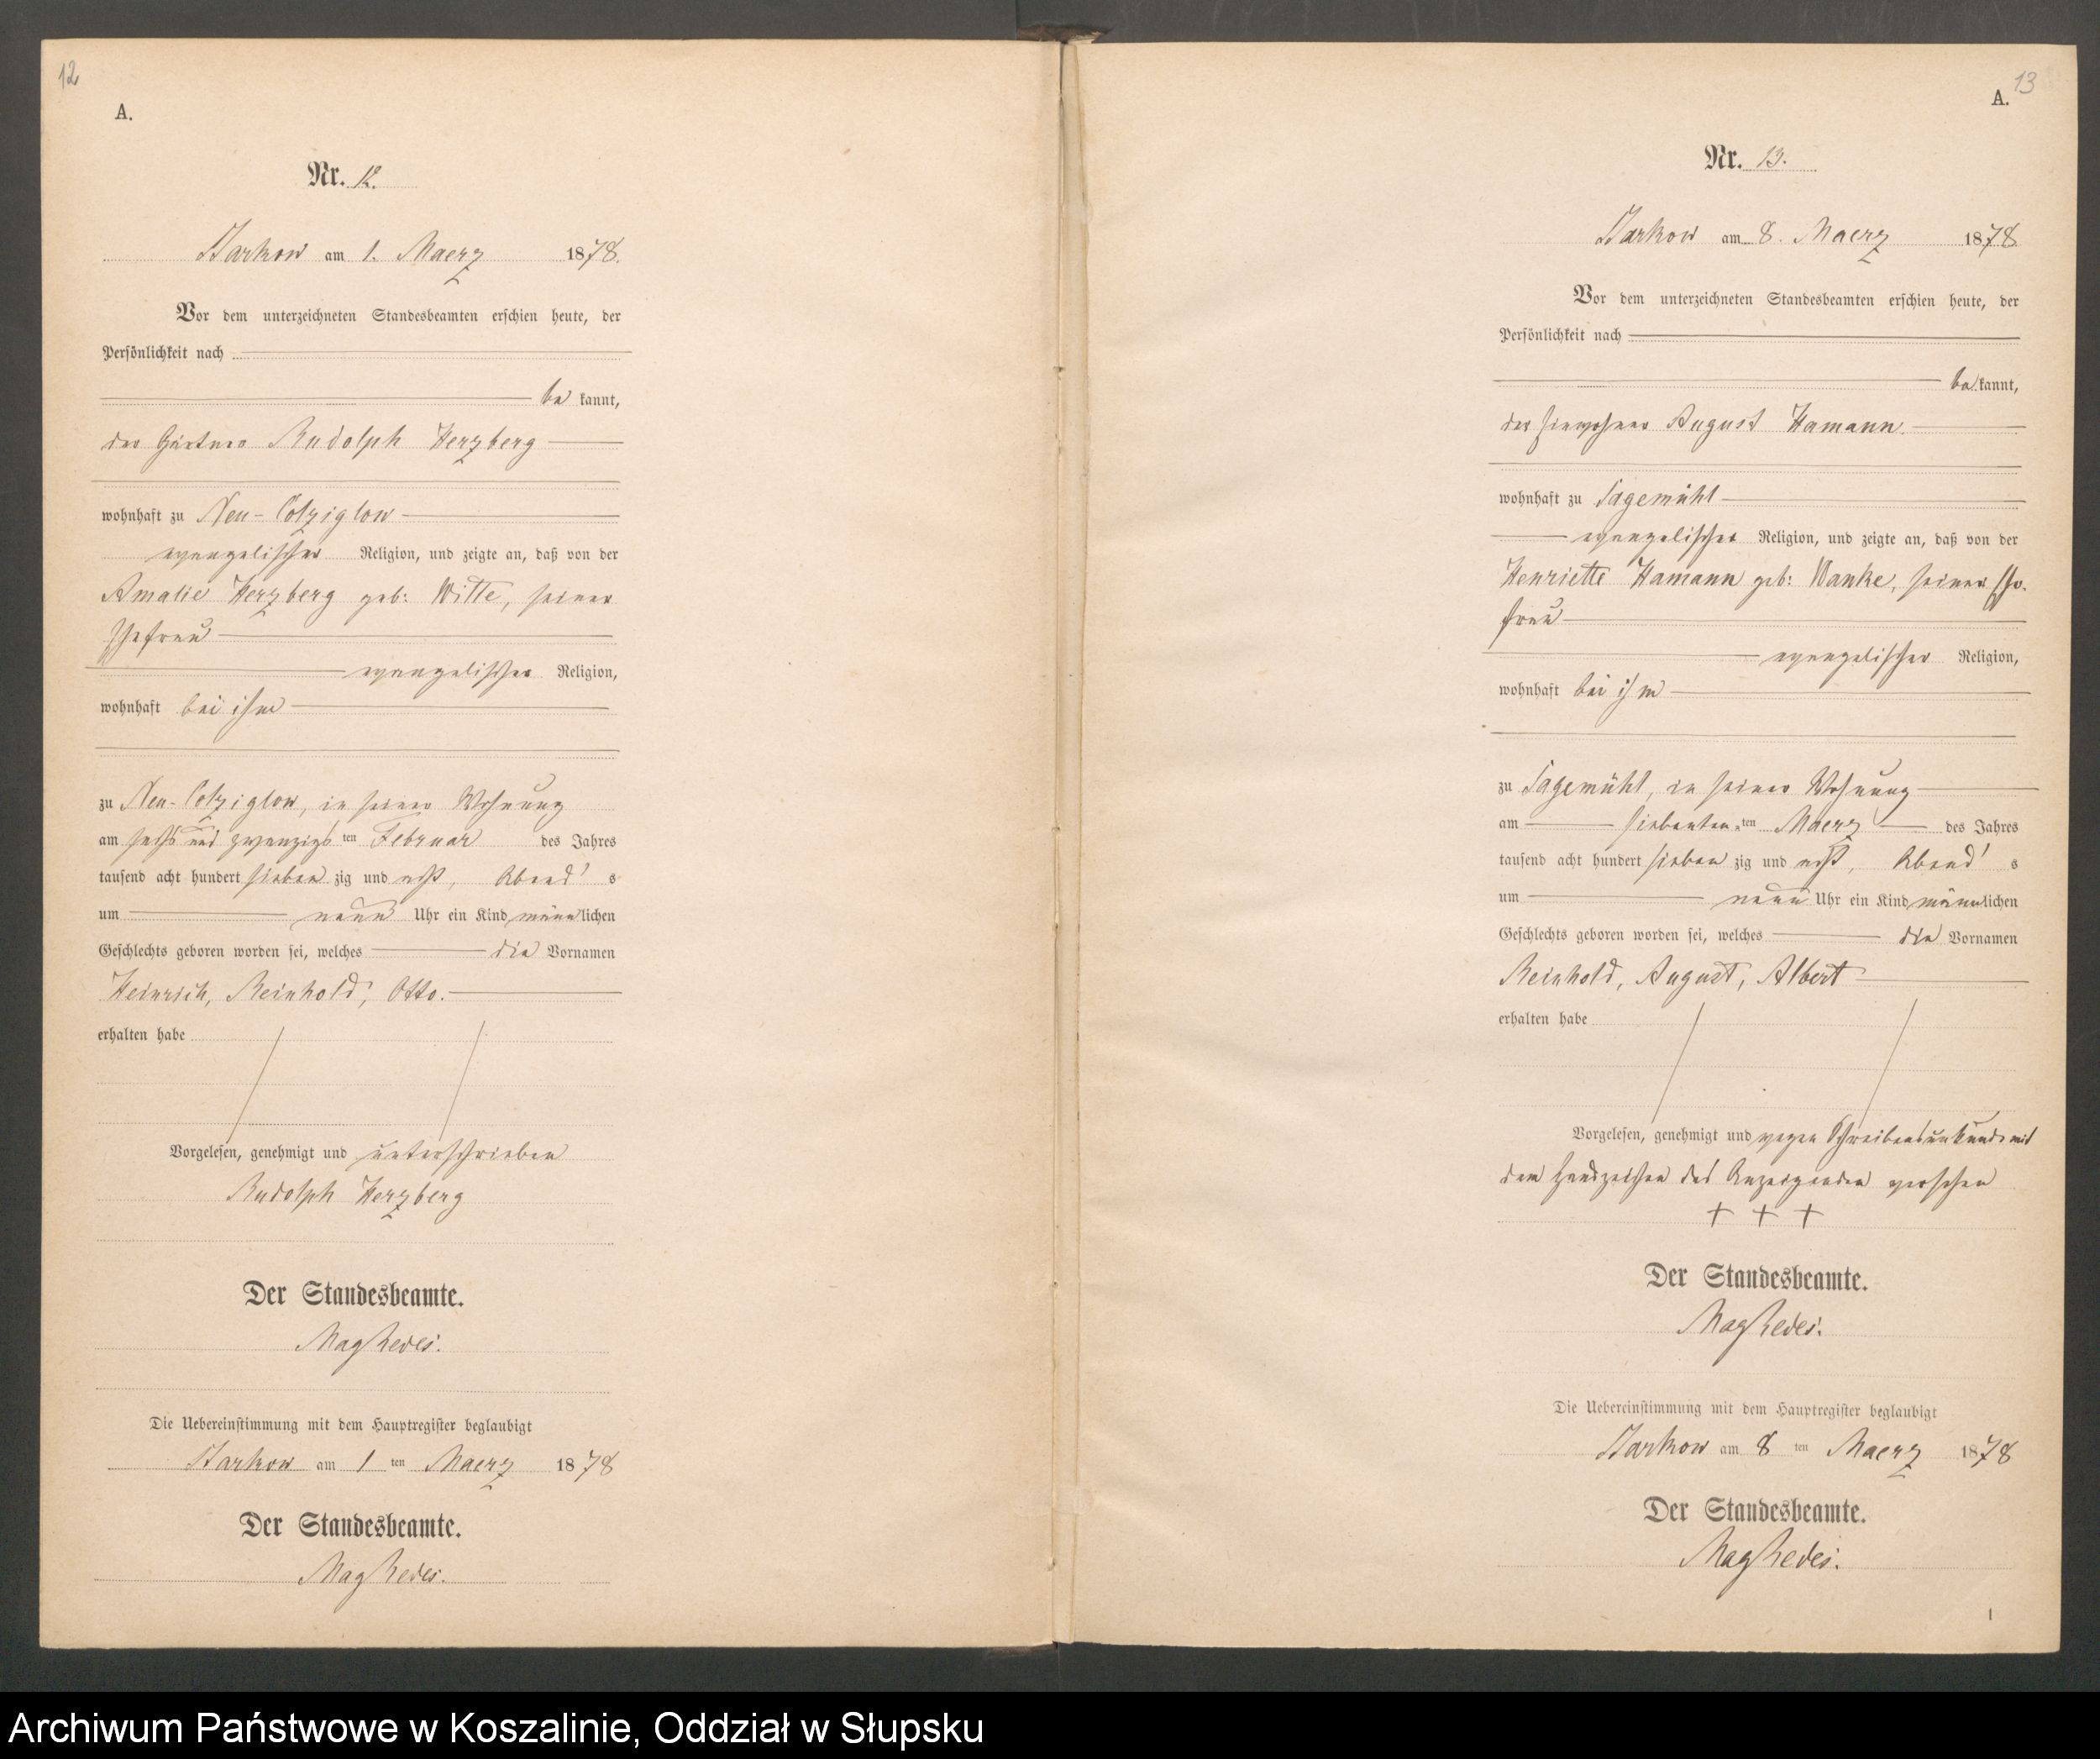 12
A.
Nr. 12.
Starkow am 1. Maerz 1878.
Vor dem unterzeichneten Standesbeamten erschien heute, der
Persönlichkeit nach
be kannt,
der Gärtner Rudolph Herzberg
wohnhaft zu Neu-Colziglow
evangelischer Religion, und zeigte an, daß von der
Amalie Herzberg geb: Witte, seiner
Ehefrau
evangelischer Religion,
wohnhaft bei ihm
zu Neu-Colziglow, in seiner Wohnung
am sechs und zwanzigs ten Februar des Jahres
tausend acht hundert sieben zig und acht, Abend s
um neun Uhr ein Kind männlichen
Geschlechts geboren worden sei, welches die Vornamen
Heinrich, Reinhold, Otto.
erhalten habe
Vorgelesen, genehmigt und unterschrieben
Rudolph Herzberg
Der Standesbeamte.
Die Uebereinstimmung mit dem Hauptregister beglaubigt
Starkow am 1 ten Maerz 1878
Der Standesbeamte.
13
A.
Nr. 13.
Starkow am 8. Maerz 1878
Vor dem unterzeichneten Standesbeamten erschien heute, der
Persönlichkeit nach
be kannt,
der Einwohner August Hamann.
wohnhaft zu Sagemühl
evangelischer Religion, und zeigte an, daß von der
Henriette Hamann geb: Wanke, seiner Ehe-
frau
evangelischer Religion,
wohnhaft bei ihm
zu Sagemühl, in seiner Wohnung
am siebenten ten Maerz des Jahres
tausend acht hundert sieben zig und acht, Abend s
um neun Uhr ein Kind männlichen
Geschlechts geboren worden sei, welches die Vornamen
Reinhold, August, Albert
erhalten habe
Vorgelesen, genehmigt und wegen Schreibensunkunde mit
dem Handzeichen des Anzeigenden versehen
+ + +
Der Standesbeamte.
Die Uebereinstimmung mit dem Hauptregister beglaubigt
Starkow am 8 ten Maerz 1878
Der Standesbeamte.
1
Archiwum Państwowe w Koszalinie, Oddział w Słupsku